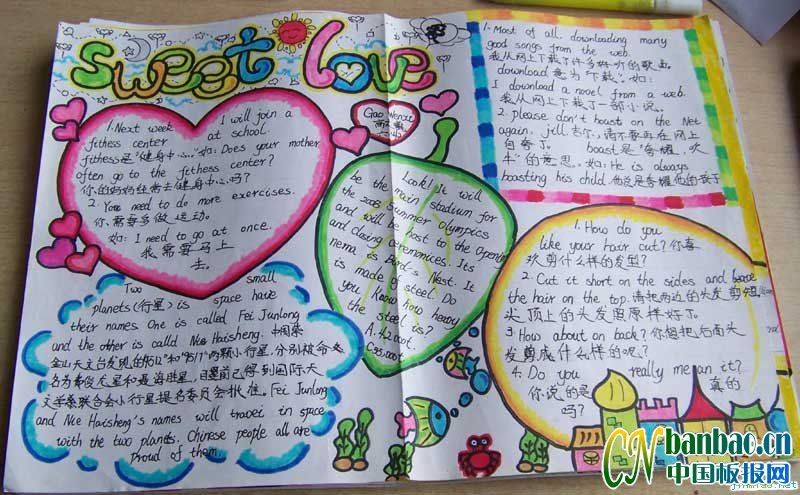 sweet love
1. Next week I will join a
fitness center at school.
fithess是"健身中心。"如: Does your mother
often go to the fithess center?
你的妈妈经常去健身中心吗?
2. You need to do more exercises.
你需要多做运动。
如: I need to go at once.
我需要马上
去。
Gao Wenxi
Look! It will
be the main stadium for
the 2008 Summer Olympics
and will be host to the Opening
and closing ceremonies. Its
nema is Bird's Nest. It
is made of steel. Do
you know how heavy
the steel is?
A. 42000t.
1. Most of all downloading many
good songs from the web.
我从网上下载了许多好听的歌曲
download 意为"下载"。如:
I download a novel from a web.
我从网上下载了一部小说。
2. please don't boast on the Net
again, jill 吉尔,请不要再在网上
自夸了。 boast是"夸耀,吹
牛"的意思。如: He is always
boasting his child. 他总是夸耀他的孩子
Two small
planets(行星) is space have
their names. One is called Fei Junlong
and the other is called Nie Haisheng. 中国紫
金山天文台发现的 和 两颗小行星,分别被命
名为费俊龙星和聂海胜星,目前已得到国际天
文学联合会小行星提名委员会批准。Fei Junlong
and Nie Haisheng's names will travel in space
with the two planets. Chinese people all are
proud of them.
1. How do you
like your hair cut? 你喜
欢剪什么样的发型?
2. Cut it short on the sides and leave
the hair on the top. 请把两边的头发剪短
头顶上的头发照原样好了。
3. How about on back? 你想把后面头
发剪成什么样的呢?
4. Do you really mean it?
你说的是 真的
吗?
CNbanbao.cn
中国板报网